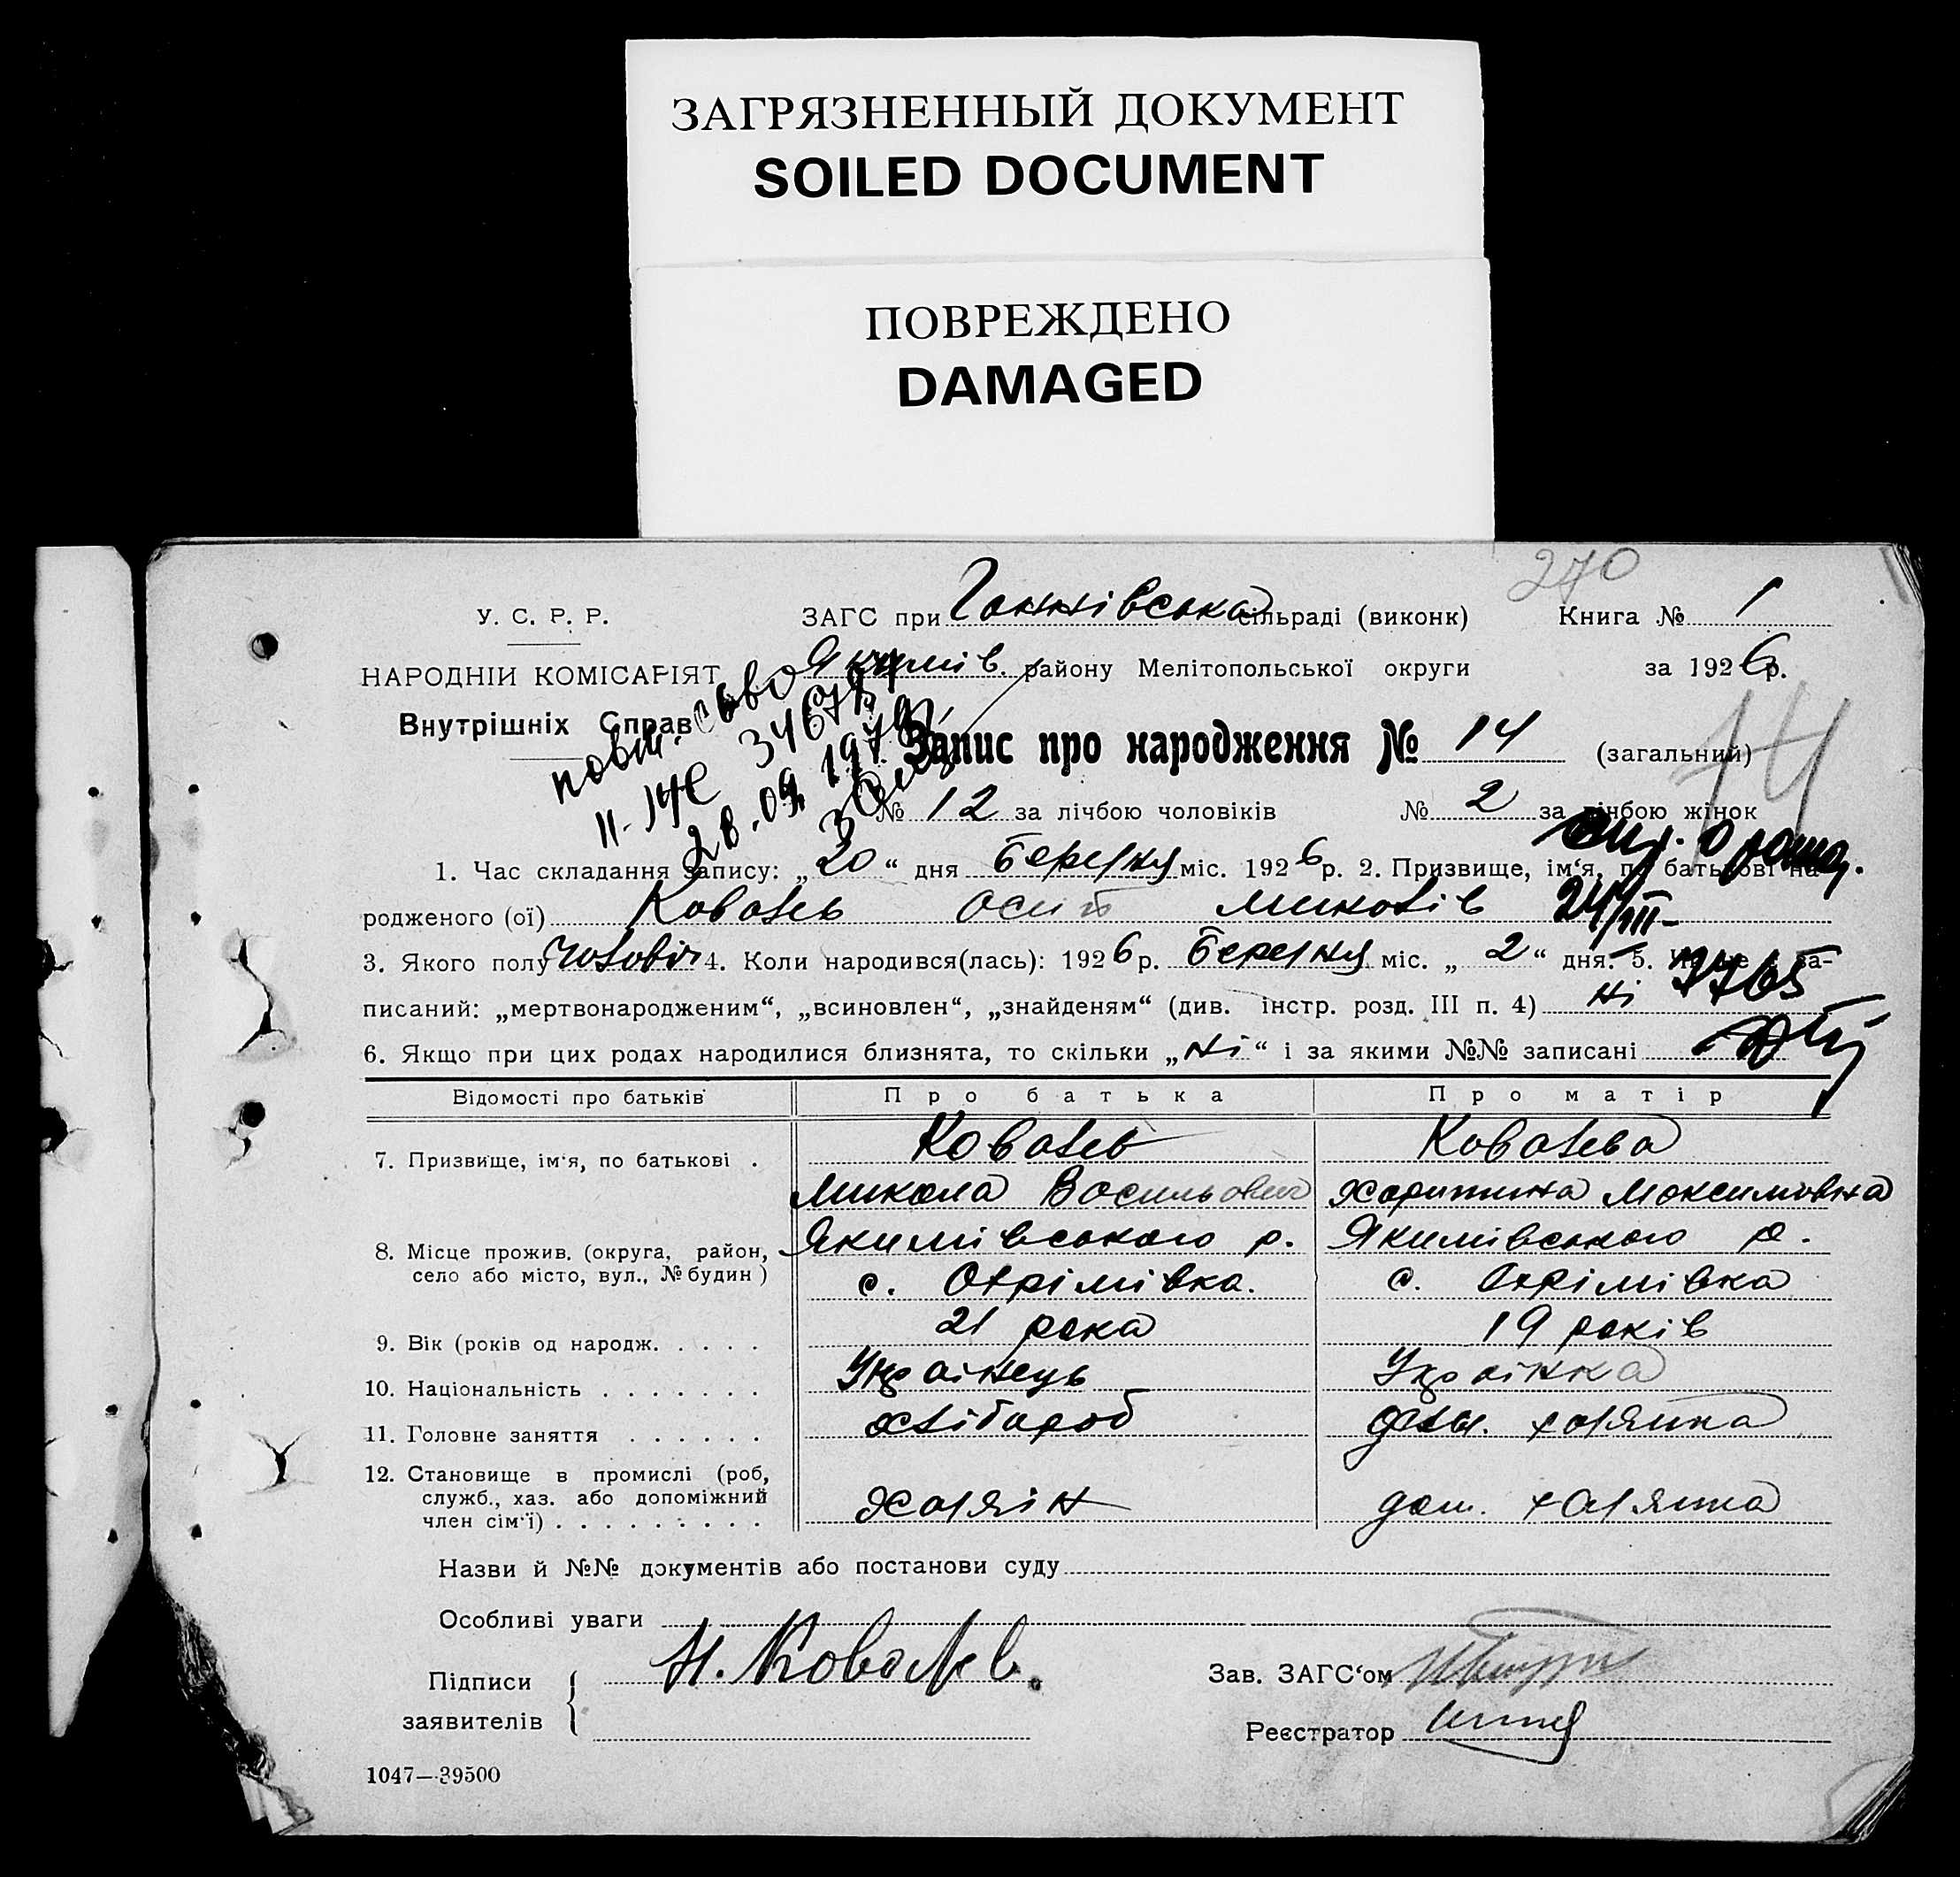 ЗАГРЯЗНЕННЫЙ ДОКУМЕНТ
SOILED DOCUMENT
ПОВРЕЖДЕНО
DAMAGED
270
У. С. Р. Р.
ЗАГС при Ганнівська сільраді (виконк) Книга № 1
НАРОДНІЙ КОМІСАРІЯТ
Якимів. району Мелітопольської округи за 1926 р.
Внутрішніх Справ
повт. с-во
II-ЖС 346784
28.09.1979
Запис про народження № 14 (загальний)
14
№ 12 за лічбою чоловіків № 2 за лічбою жінок
1. Час складання запису: „20“ дня березня міс. 1926 р. 2. Призвище, ім‘я, по батькові на-
родженого (ої) Ковалев Осип Миколів
24/III-
3. Якого полу чоловіч 4. Коли народився(лась): 1926 р. березня міс. „2“ дня. 5. за-
писаний: „мертвонародженим“, „всиновлен“, „знайденям“ (див. інстр. розд. III п. 4) ні
6. Якщо при цих родах народилися близнята, то скільки „ні“ і за якими №№ записані
Відомості про батьків Про батька Про матір
7. Призвище, ім‘я, по батькові . Ковалев Ковалева
Микола Васильович Харитина Максимовна
8. Місце прожив. (округа, район, село або місто, вул., № будин) Якимівського р. Якимівського р.
с. Охрімівка. с. Охрімівка
9. Вік (років од народж. . . . . 21 рока 19 років
10. Національність . . . . . . . Українець Українка
11. Головне заняття . . . . . . хлібороб хазяйка
12. Становище в промислі (роб, служб., хаз. або допоміжний член сім‘ї) . . . . . . . . . хазяін дом. хазяйка
Назви й №№ документів або постанови суду
Особливі уваги
Підписи заявителів Н. Ковалев.
Зав. ЗАГС‘ом
Реєстратор
1047—39500